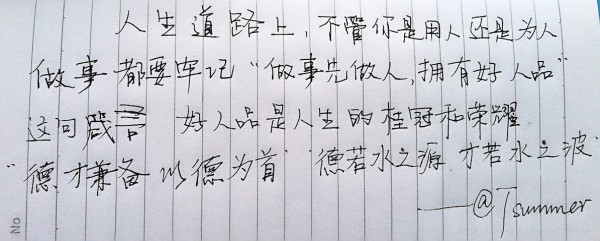 人生道路上，不管你是用人还是为人
做事都要牢记“做事先做人，拥有好人品”
这句箴言 好人品是人生的桂冠和荣耀
“德才兼备 以德为首” 德若水之源 才若水之波
——@Tsummer
NO